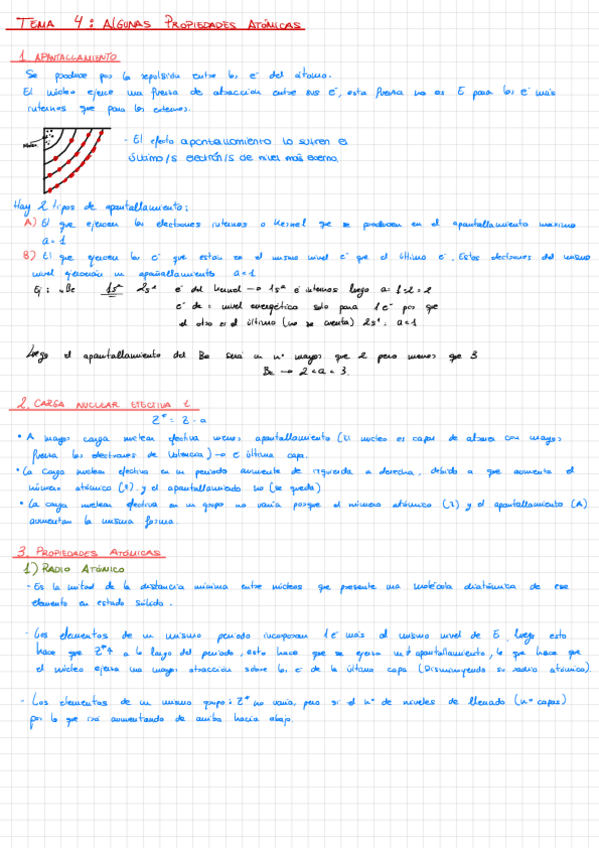 TEMA 4: ALGUNAS PROPIEDADES ATÓMICAS
1. APANTALLAMIENTO
Se produce por la repulsión entre los e⁻ del átomo.
El núcleo ejerce una fuerza de atracción entre sus e⁻, esta fuerza no es E para los e⁻ más
internos que para los externos.
Núcleo
- El efecto apantallamiento lo sufren el
último/s electrón/s de nivel más externo.
Hay 2 tipos de apantallamiento:
A) El que ejercen los electrones internos o Kernel que se producen en el apantallamiento máximo
a = 1
B) El que ejercen los e⁻ que están en el mismo nivel e⁻ que el último e⁻. Estos electrones del mismo
nivel ejercerán un apantallamiento a < 1
Ej: ₄Be 1s² 2s² e⁻ del Kernel → 1s² e⁻ internos luego a = 1·2 = 2
e⁻ de = nivel energético solo para 1 e⁻ por que
el otro es el último (no se cuenta) 2s¹: a < 1
Luego el apantallamiento del Be será un nº mayor que 2 pero menor que 3
Be → 2 < a < 3.
2. CARGA NUCLEAR EFECTIVA
Z* = Z - a
• A mayor carga nuclear efectiva menos apantallamiento (El núcleo es capaz de atraer con mayor
fuerza los electrones de valencia) → e⁻ última capa.
• La carga nuclear efectiva en un periodo aumenta de izquierda a derecha, debido a que aumenta el
número atómico (Z) y el apantallamiento no (se queda)
• La carga nuclear efectiva en un grupo no varía porque el número atómico (Z) y el apantallamiento (A)
aumentan la misma forma.
3. PROPIEDADES ATÓMICAS
1) RADIO ATÓMICO
- Es la mitad de la distancia mínima entre núcleos que presente una molécula diatómica de ese
elemento en estado sólido.
- Los elementos de un mismo periodo incorporan 1 e⁻ más al mismo nivel de E, luego esto
hace que Z*↑ a lo largo del periodo, esto hace que se ejerza apantallamiento, lo que hace que
el núcleo ejerza una mayor atracción sobre los e⁻ de la última capa (Disminuyendo su radio atómico).
- Los elementos de un mismo grupo: Z* no varía, pero sí el nº de niveles de llenado (nº capas)
por lo que irá aumentando de arriba hacia abajo.